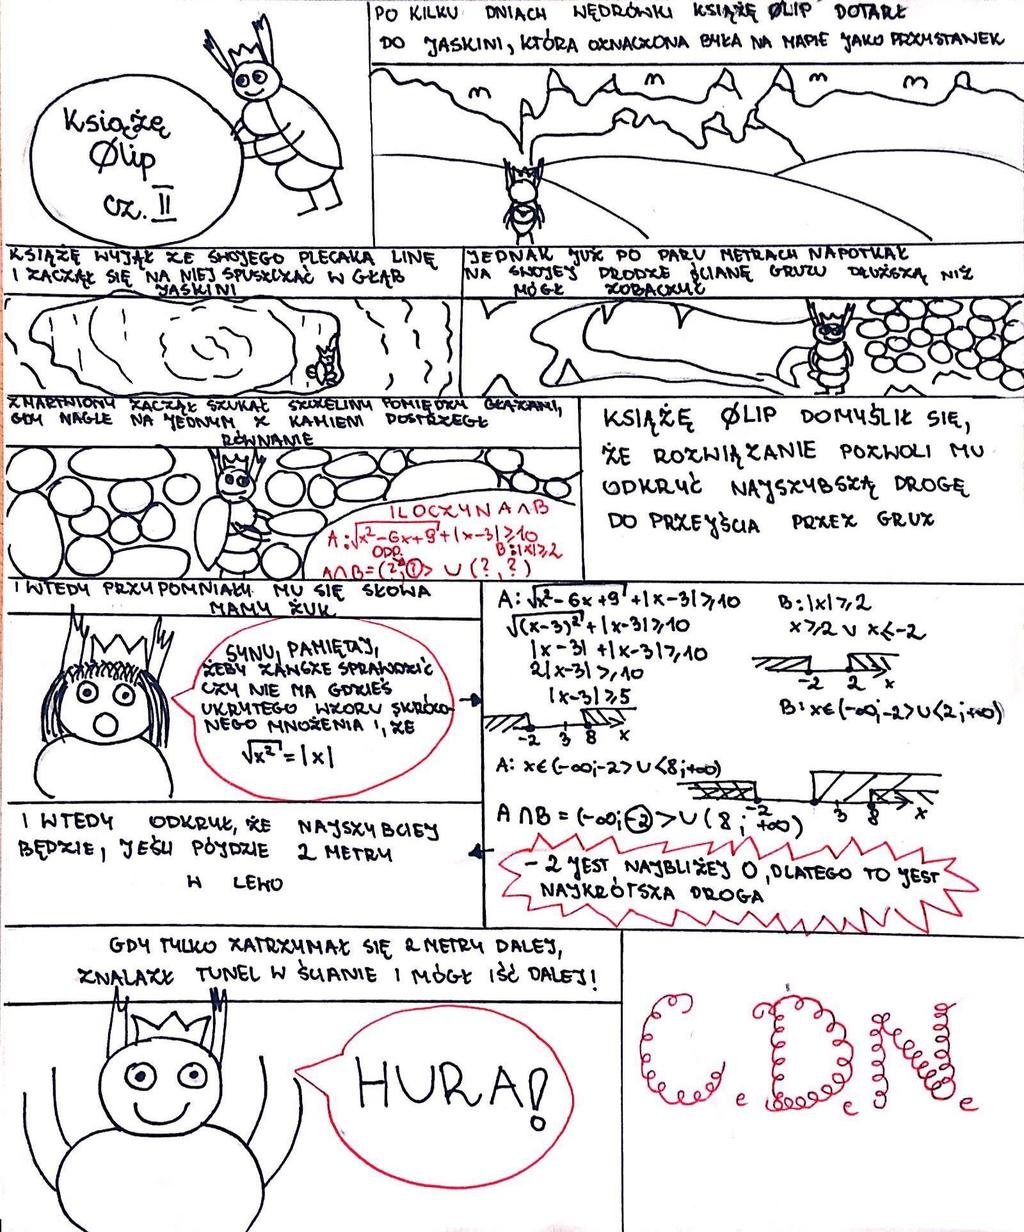 Książę
Ølip
cz. II
PO KILKU DNIACH WĘDRÓWKI KSIĄŻĘ ØLIP DOTARŁ
DO JASKINI, KTÓRA OZNACZONA BYŁA NA MAPIE JAKO PRZYSTANEK
KSIĄŻĘ WYJĄŁ ZE SWOJEGO PLECAKA LINĘ
I ZACZĄŁ SIĘ NA NIEJ SPUSZCZAĆ W GŁĄB
JASKINI
JEDNAK JUŻ PO PARU METRACH NAPOTKAŁ
NA SWOJEJ DRODZE ŚCIANĘ GRUZU DŁUŻSZĄ NIŻ
MÓGŁ ZOBACZYĆ
ZMARTWIONY ZACZĄŁ SZUKAŁ SZCZELINY POMIĘDZY GŁAZAMI,
GDY NAGLE NA JEDNYM Z KAMIENI DOSTRZEGŁ
RÓWNANIE
ILOCZYN A∩B
A: √x²-6x+9 + |x-3| ≥ 10
ODP. B: |x| ≥ 2
A∩B = (?; ?> ∪ (?, ?)
KSIĄŻĘ ØLIP DOMYŚLIŁ SIĘ,
ŻE ROZWIĄZANIE POZWOLI MU
ODKRYĆ NAJSZYBSZĄ DROGĘ
DO PRZEJŚCIA PRZEZ GRUZ
I WTEDY PRZYPOMNIAŁY MU SIĘ SŁOWA
MAMY ŻUK
SYNU, PAMIĘTAJ,
ŻEBY ZAWSZE SPRAWDZIĆ
CZY NIE MA GDZIEŚ
UKRYTEGO WZORU SKRÓCO-
NEGO MNOŻENIA I, ŻE
√x² = |x|
A: √x²-6x+9 + |x-3| ≥ 10
√(x-3)² + |x-3| ≥ 10
|x-3| + |x-3| ≥ 10
2|x-3| ≥ 10
|x-3| ≥ 5
-2 3 8 x
A: x∈(-∞;-2> ∪ <8;+∞)
B: |x| ≥ 2
x ≥ 2 ∨ x ≤ -2
-2 2 x
B: x∈(-∞;-2> ∪ <2;+∞)
-2 3 8 x
A∩B = (-∞;-2> ∪ (8; +∞)
-2 JEST NAJBLIŻEJ 0, DLATEGO TO JEST
NAJKRÓTSZA DROGA
I WTEDY ODKRYŁ, ŻE NAJSZYBCIEJ
BĘDZIE, JEŚLI PÓJDZIE 2 METRY
W LEWO
GDY TYLKO ZATRZYMAŁ SIĘ 2 METRY DALEJ,
ZNALAZŁ TUNEL W ŚCIANIE I MÓGŁ IŚĆ DALEJ!
HURA!
C.D.N.